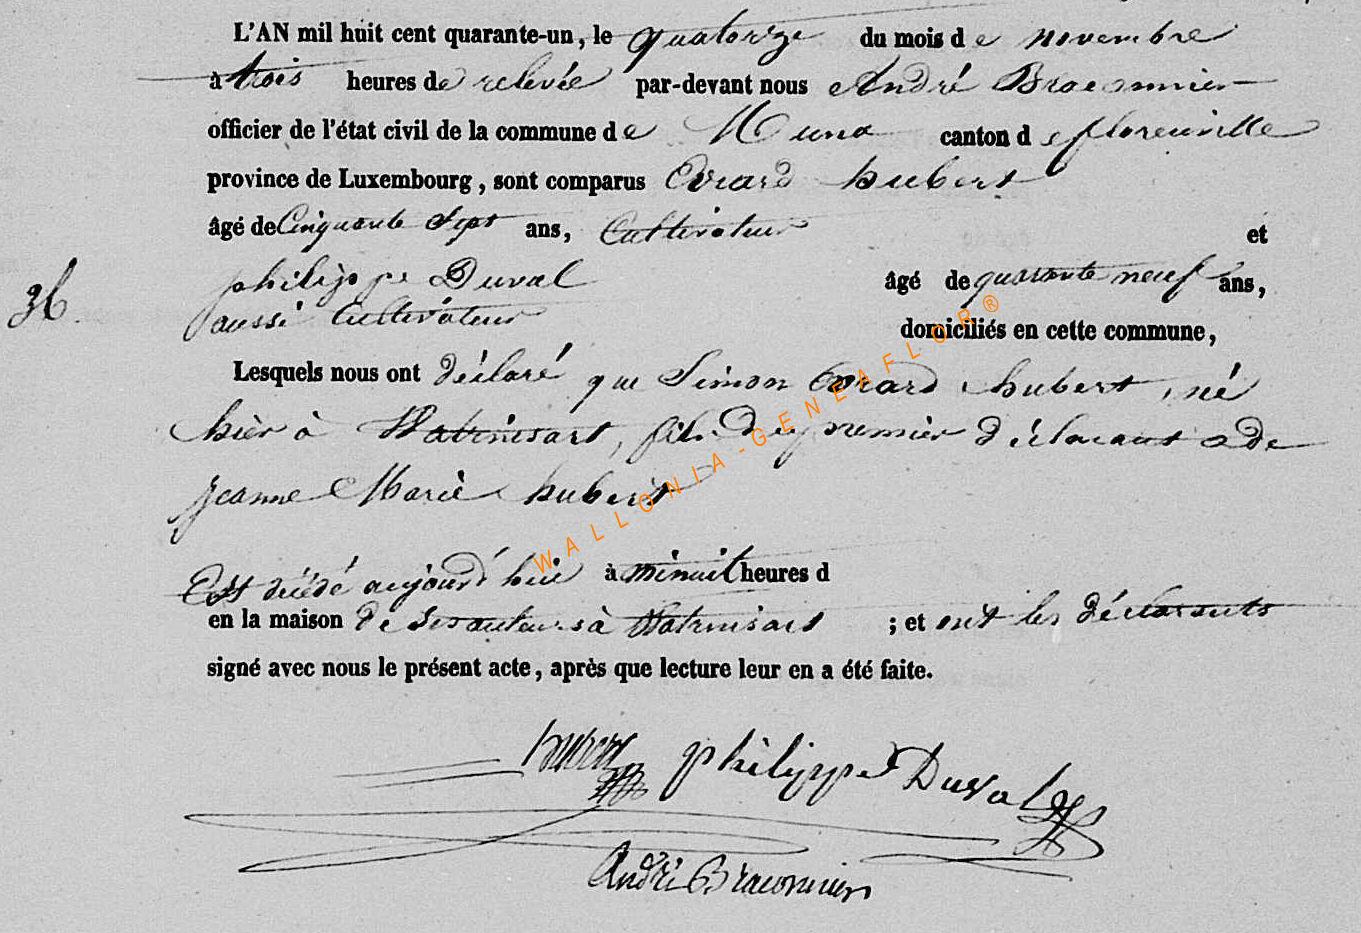 L'AN mil huit cent quarante-un, le quatorze du mois de novembre
à trois heures de relevée par-devant nous André Braconnier
officier de l'état civil de la commune de Muno canton de florenville
province de Luxembourg, sont comparus Evrard hubert
âgé de Cinquante Sept ans, Cultivateur et
philippe Duval âgé de quarante neuf ans,
36 aussi Cultivateur domiciliés en cette commune,
Lesquels nous ont déclaré que Simon Evrard hubert, né
hier à Watrinsart, fils du premier déclarant & de
jeanne Marie hubert
Est décédé aujourd'hui à minuit heures d
en la maison de ses auteurs à Watrinsart ; et ont les déclarants
signé avec nous le présent acte, après que lecture leur en a été faite.
hubert philippe Duval
André Braconnier
WALLONIA-GENEAFLOR®